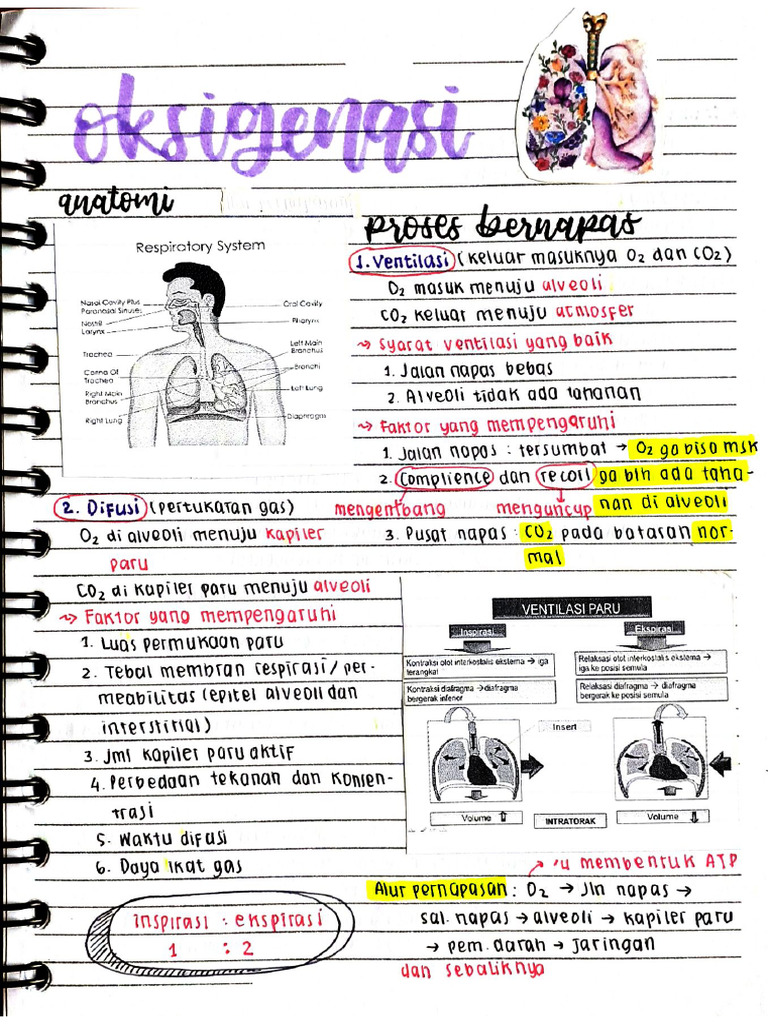 oksigenasi
anatomi
Respiratory System
Nasal Cavity Plus
Paranasal Sinuses
Nostril
Larynx
Trachea
Carina Of
Trachea
Right Main
Bronchus
Right Lung
Oral Cavity
Pharynx
Left Main
Bronchus
Bronchi
Left Lung
Diaphragm
proses bernapas
1. Ventilasi (keluar masuknya O2 dan CO2)
O2 masuk menuju alveoli
CO2 keluar menuju atmosfer
~> Syarat ventilasi yang baik
1. Jalan napas bebas
2. Alveoli tidak ada tahanan
~> Faktor yang mempengaruhi
1. Jalan napas : tersumbat → O2 ga bisa msk
2. Complience dan recoil ga blh ada taha-
mengembang menguncup nan di alveoli
3. Pusat napas : CO2 pada batasan nor-
mal
2. Difusi (pertukaran gas)
O2 di alveoli menuju kapiler
paru
CO2 di kapiler paru menuju alveoli
~> Faktor yang mempengaruhi
1. Luas permukaan paru
2. Tebal membran respirasi / per-
meabilitas (epitel alveoli dan
interstitial)
3. Jml kapiler paru aktif
4. Perbedaan tekanan dan konsen-
trasi
5. Waktu difusi
6. Daya ikat gas
inspirasi : ekspirasi
1 : 2
VENTILASI PARU
Inspirasi
Ekspirasi
Kontraksi otot interkostalis eksterna → iga
terangkat
Relaksasi otot interkostalis eksterna →
iga ke posisi semula
Kontraksi diafragma → diafragma
bergerak inferior
Relaksasi diafragma → diafragma
bergerak ke posisi semula
Insert
Volume ⇧
INTRATORAK
Volume ⇩
→ 'u membentuk ATP
Alur pernapasan : O2 → Jln napas →
sal. napas → alveoli → kapiler paru
→ pem. darah → jaringan
dan sebaliknya